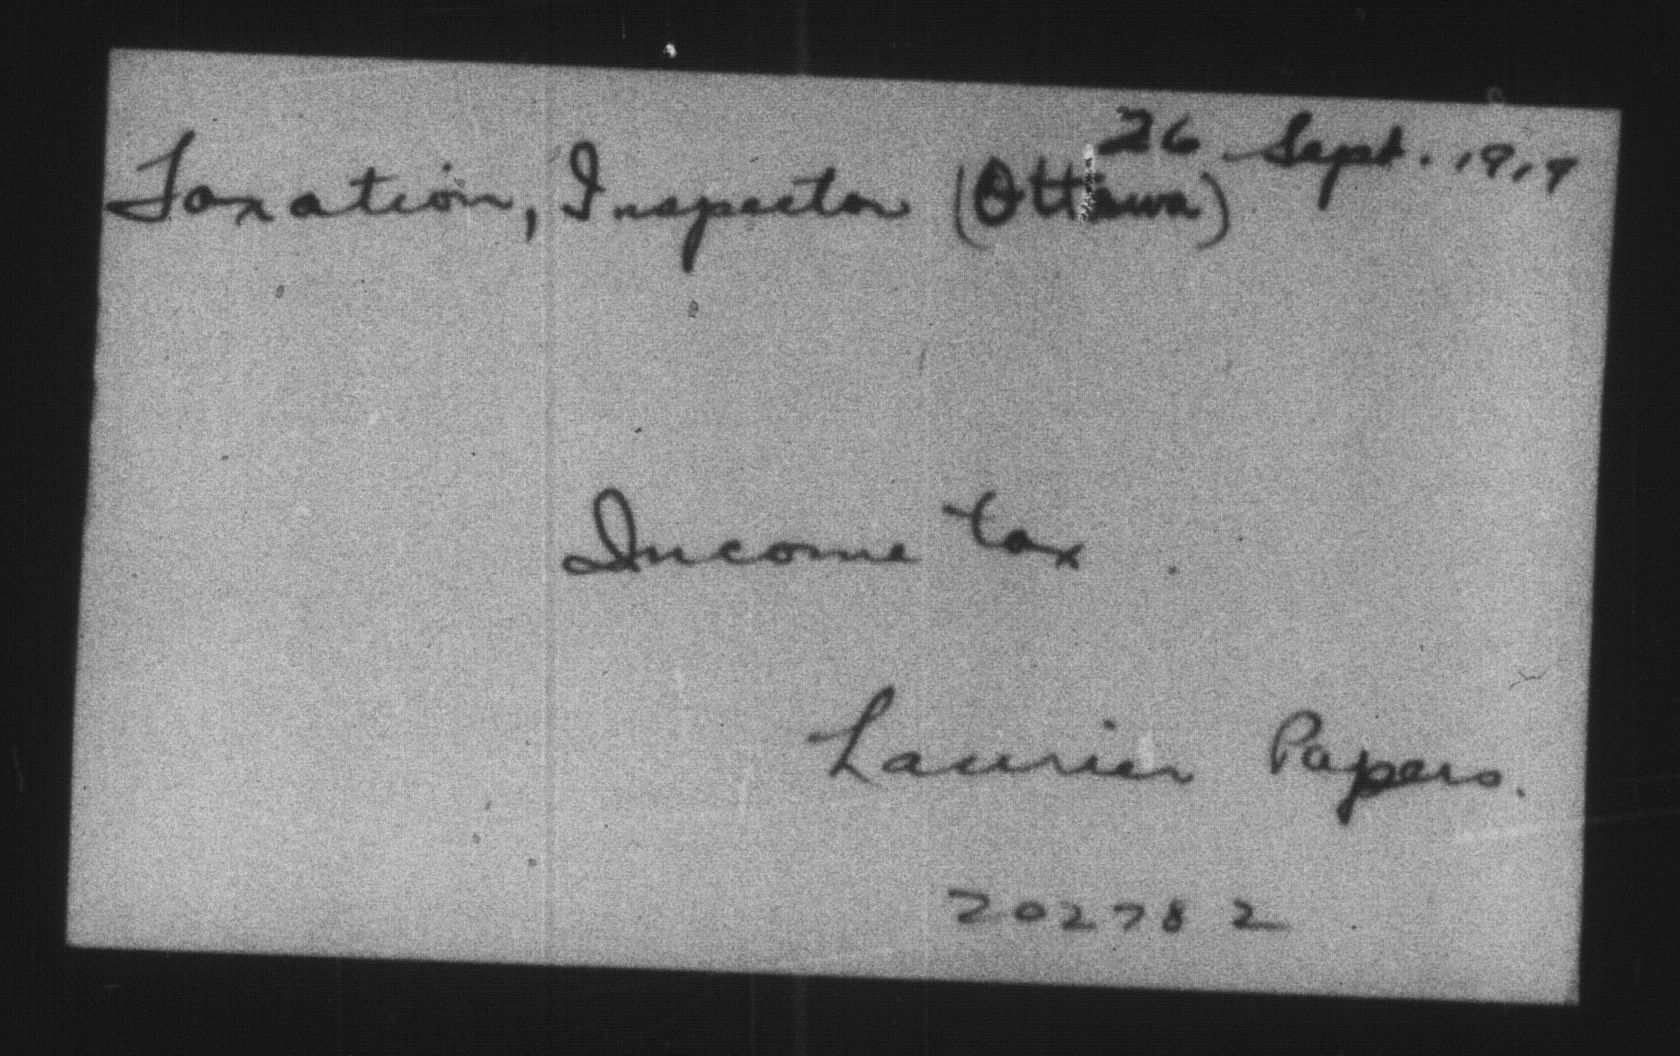 26 Sept. 1919
Taxation, Inspector (Ottawa)
Income tax.
Laurier Papers.
202782